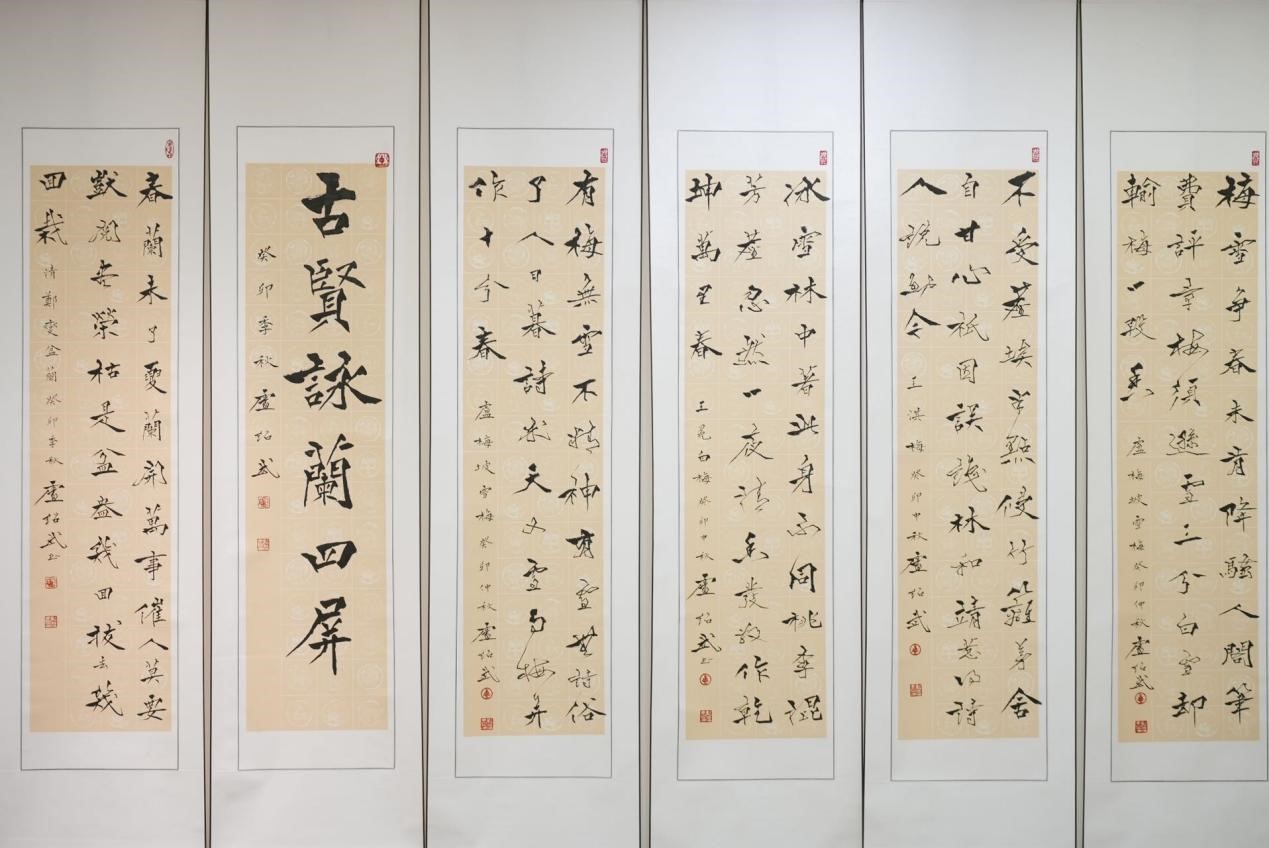 梅雪爭春未肯降騷人閣筆
費評章梅須遜雪三分白雪卻
輸梅一段香 盧梅坡雪梅癸卯仲秋盧紹武
不受塵埃半點侵竹籬茅舍
自甘心祇因誤識林和靖惹得詩
人說到今 王淇梅癸卯中秋盧紹武
冰雪林中著此身不同桃李混
芳塵忽然一夜清香發散作乾
坤萬里春 王冕白梅癸卯中秋盧紹武書
有梅無雪不精神有雪無詩俗
了人日暮詩成天又雪與梅并
作十分春 盧梅坡雪梅癸卯仲秋盧紹武
古賢詠蘭四屏
癸卯季秋盧紹武
春蘭未了夏蘭開萬事催人莫要
獃閱盡榮枯是盆盎幾回拔去幾
回栽 清鄭燮盆蘭癸卯季秋盧紹武書